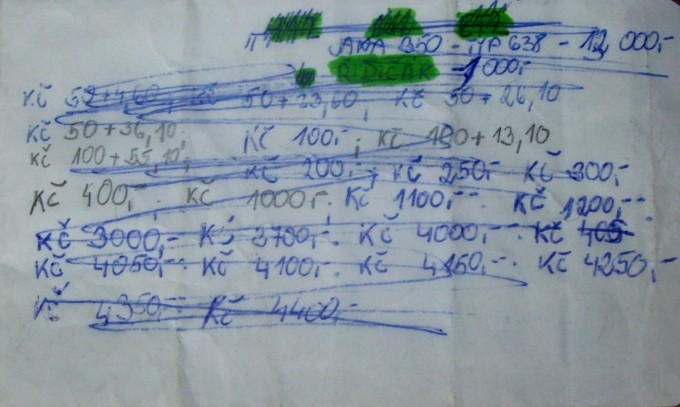 JAWA 350 - TYP 638 - 12 000,-
ŘIDIČÁK - 1 000,-
Kč 52+4,60, Kč 50+23,60, Kč 50+26,10
Kč 50+36,10. Kč 100,-; Kč 100+13,10
Kč 100+55,10; Kč 200,-; Kč 250,- Kč 300,-
Kč 400,-. Kč 1000,-; Kč 1100,-- Kč 1200,--
Kč 3000,- Kč 3700,-- Kč 4000,-- Kč 405
Kč 4050,-- Kč 4100,-- Kč 4150,-- Kč 4250,-
Kč 4350,-- Kč 4400,-